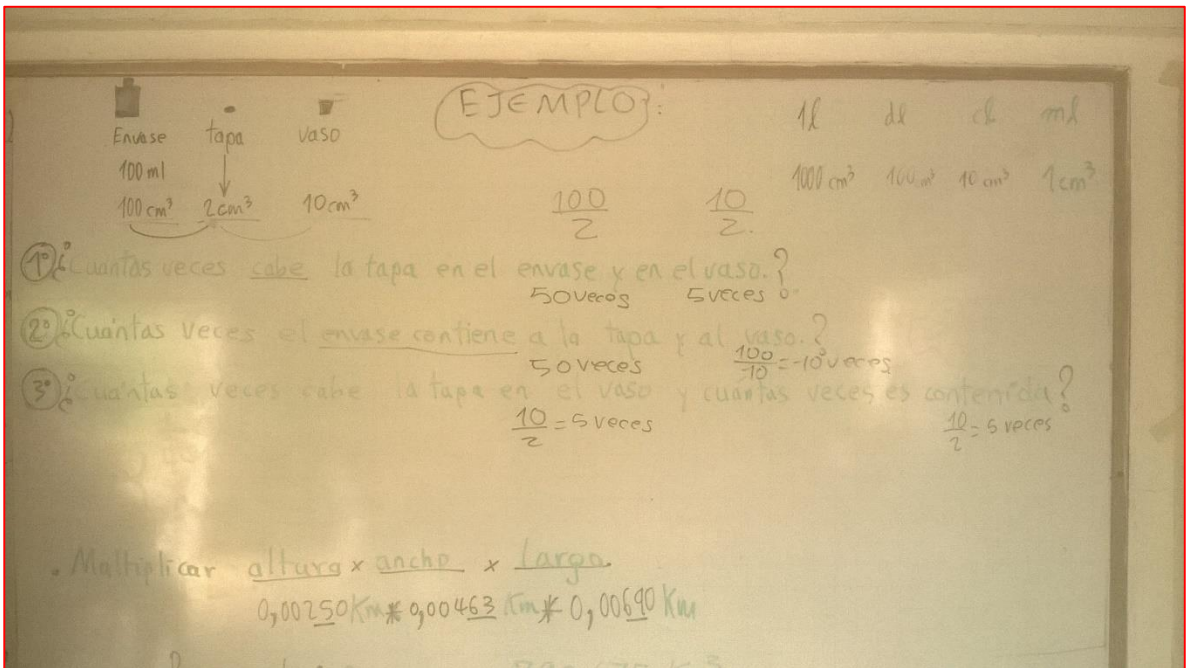 EJEMPLO:
1l dl cl ml
Envase tapa vaso
100 ml
1000 cm³ 100 cm³ 10 cm³ 1cm³
100 cm³ 2cm³ 10cm³
100/2 10/2.
1º ¿Cuántas veces cabe la tapa en el envase y en el vaso.?
50 veces 5 veces
2º ¿Cuántas veces el envase contiene a la tapa y al vaso.?
50 veces 100/10 = 10 veces
3º ¿Cuántas veces cabe la tapa en el vaso y cuántas veces es contenida?
10/2 = 5 veces 10/2 = 5 veces
. Multiplicar altura x ancho x largo.
0,00250 Km * 0,00463 Km * 0,00690 Km